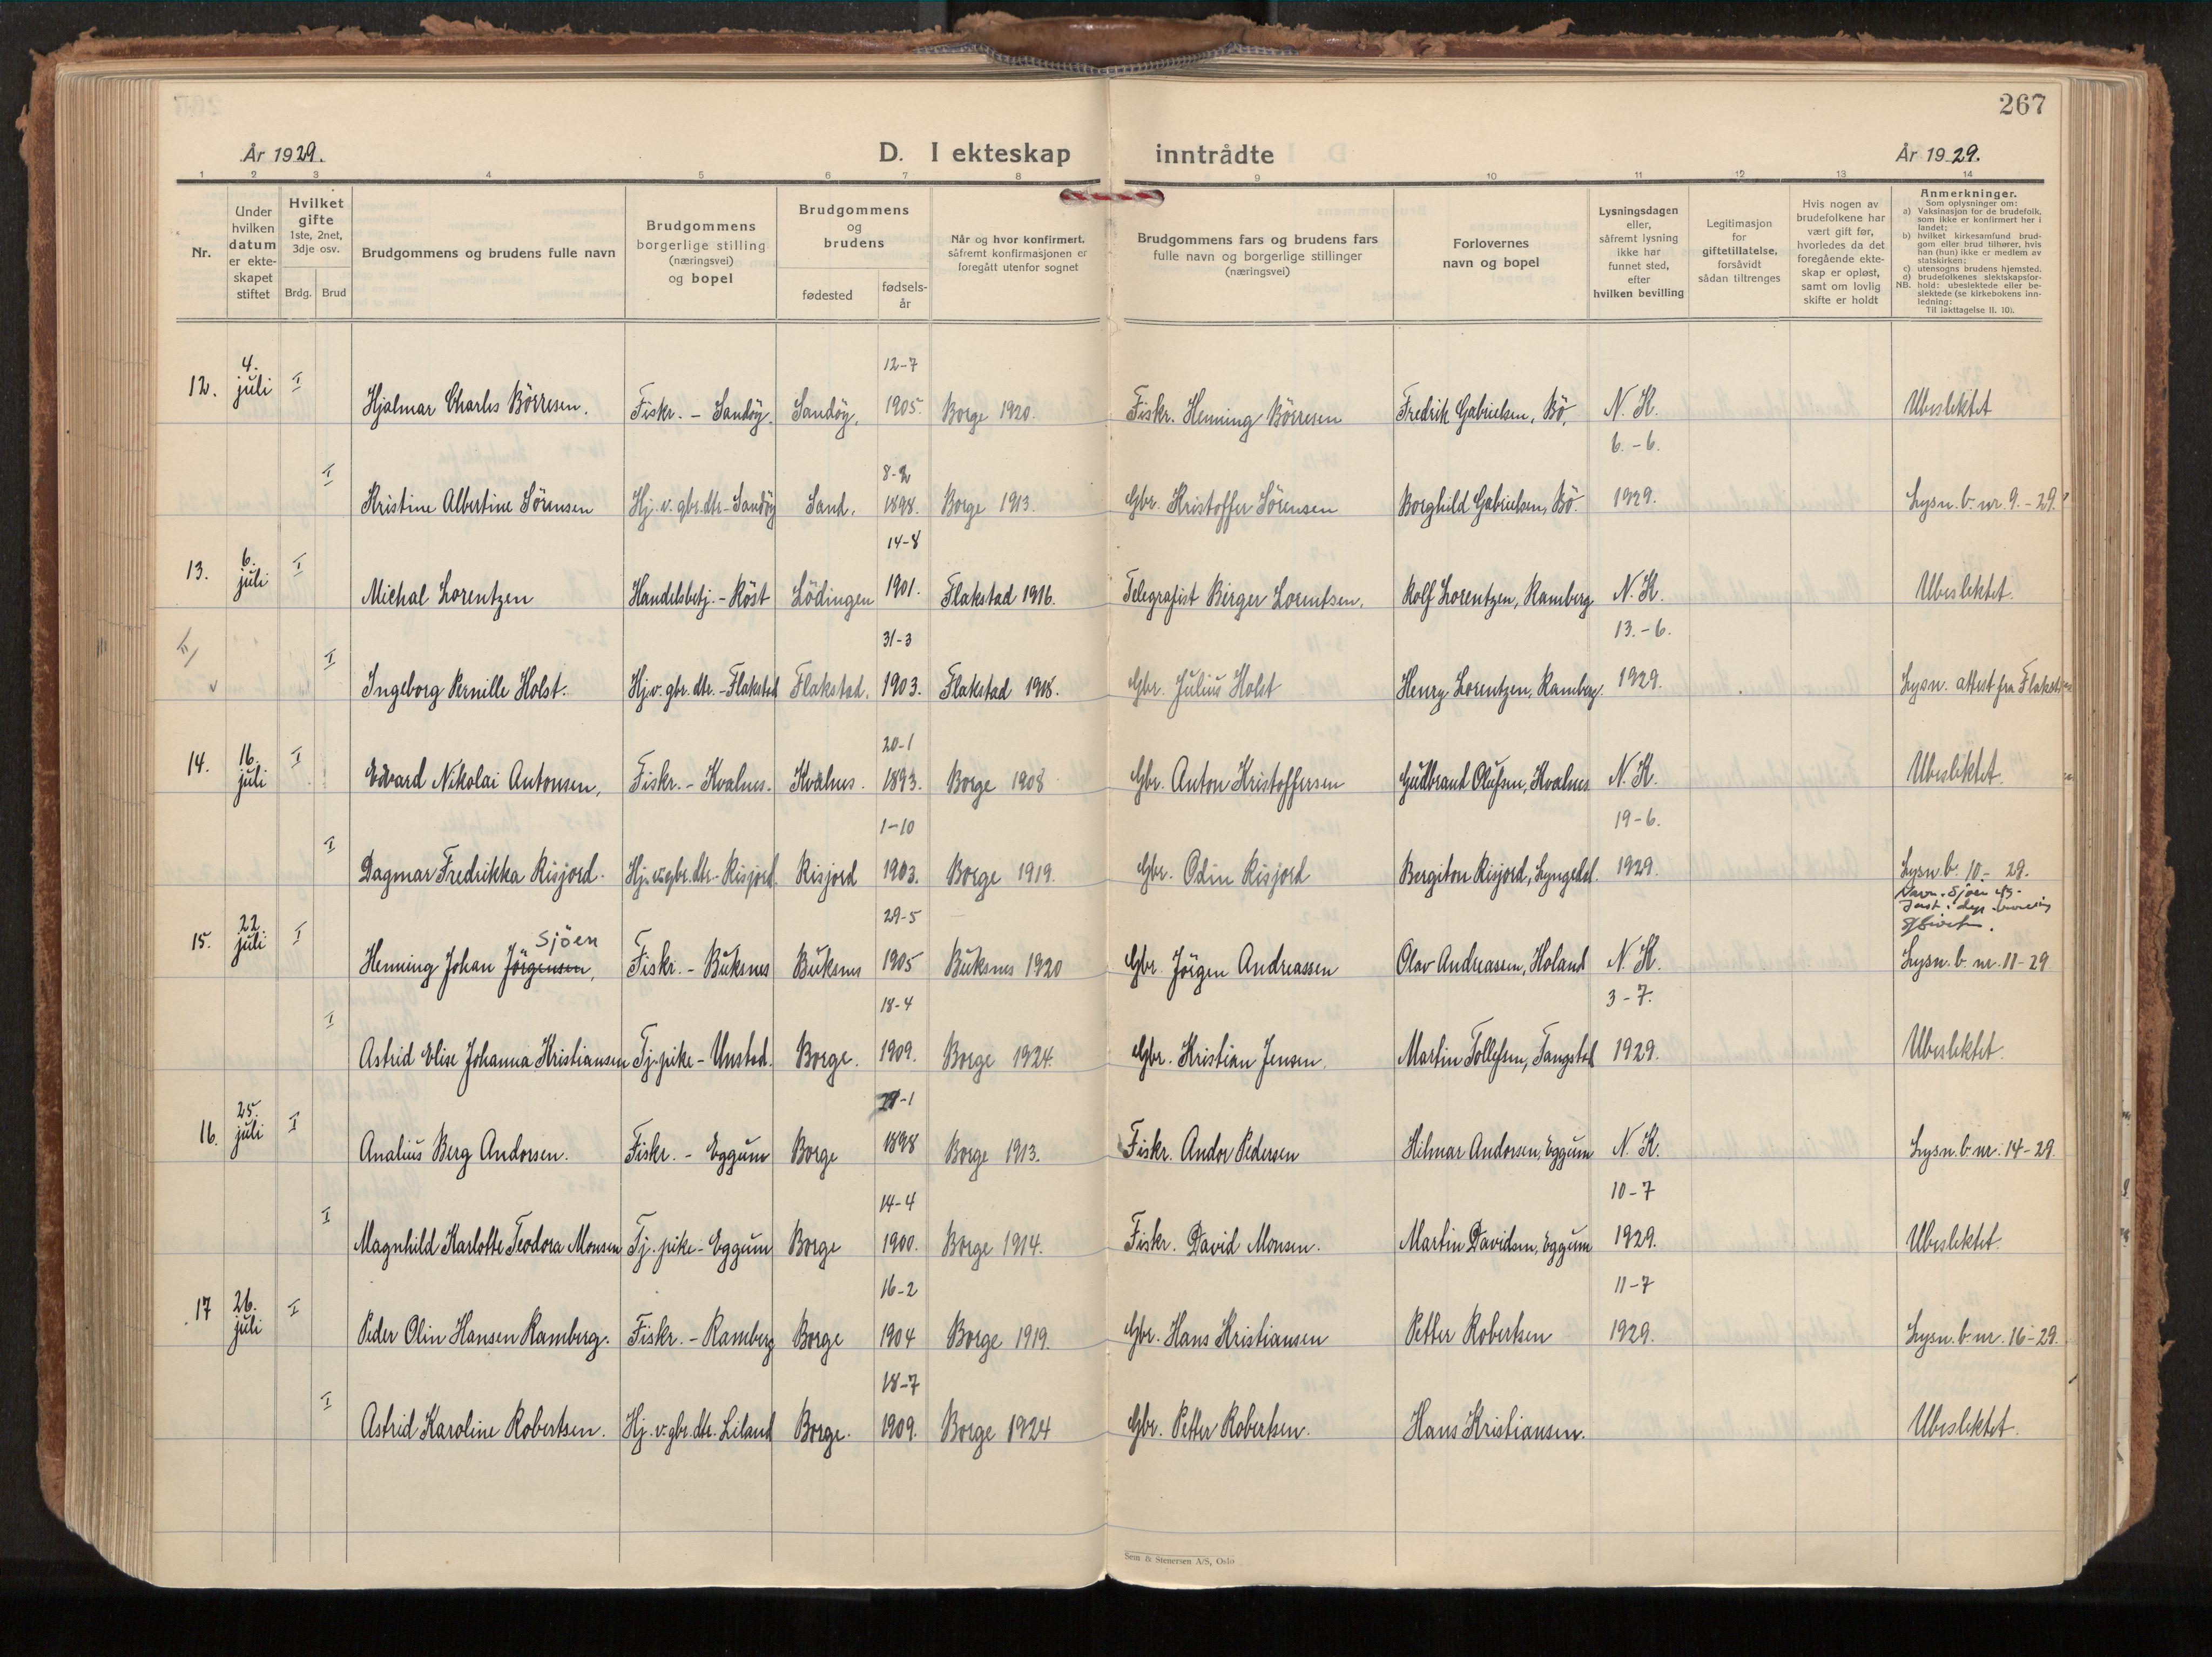 267
År 1929.
D. I ekteskap inntrådte
År 1929.
1 2 3 4 5 6 7 8 9 10 11 12 13 14
Nr.
Under hvilken datum er ekteskapet stiftet
Hvilket gifte 1ste, 2net, 3dje osv.
Brdg. Brud
Brudgommens og brudens fulle navn
Brudgommens borgerlige stilling (næringsvei) og bopel
Brudgommens og brudens
fødested
fødselsår
Når og hvor konfirmert, såfremt konfirmasjonen er foregått utenfor sognet
Brudgommens fars og brudens fars fulle navn og borgerlige stillinger (næringsvei)
Forlovernes navn og bopel
Lysningsdagen eller, såfremt lysning ikke har funnet sted, efter hvilken bevilling
Legitimasjon for giftetillatelse, forsåvidt sådan tiltrenges
Hvis nogen av brudefolkene har vært gift før, hvorledes da det foregående ekteskap er opløst, samt om lovlig skifte er holdt
Anmerkninger.
Som oplysninger om:
a) Vaksinasjon for de brudefolk, som ikke er konfirmert her i landet;
b) hvilket kirkesamfund brudgom eller brud tilhører, hvis han (hun) ikke er medlem av statskirken;
c) utensogns brudens hjemsted.
d) brudefolkenes slektskapsforhold: ubeslektede eller beslektede (se kirkebokens innledning:
NB.
Til iakttagelse II. 10).
12. 4. juli I Hjalmar Charles Börresen. Fiskr. - Sandöy. Sandöy. 12-7 1905. Borge 1920. Fiskr. Henning Börresen Fredrik Gabrielsen, Bö. N. K. Ubeslektet
6.-6.
I Kristine Albertine Sörensen Hj. v. gbr. dtr - Sandöy Sand. 8-2 1898. Borge 1913. Gbr. Kristoffer Sörensen Borghild Gabrielsen, Bö. 1929. Lysn. b. nr. 9. - 29.
13. 6. juli I Michal Lorentzen Handelsbetj. - Röst Lödingen 14-8 1901. Flakstad 1916. Telegrafist Birger Lorentsen. Rolf Lorentzen, Ramberg N. K. Ubeslektet.
13.-6.
I Ingeborg Pernille Holst. Hj. v. gbr. dtr. - Flakstad Flakstad. 31-3 1903. Flakstad 1918. Gbr. Julius Holst Henry Lorentzen, Ramberg. 1929. Lysn. attest fra Flakstad
14. 16. juli I Edvard Nikolai Antonsen, Fiskr. - Kvalnes. Kvalnes. 20-1 1893. Borge 1908 Gbr. Anton Kristoffersen Gudbrand Olufsen, Kvalnes N. K. Ubeslektet.
19-6.
I Dagmar Fredrikka Risjord. Hj. v. gbr. dtr - Risjord. Risjord 1-10 1903. Borge 1919. Gbr. Odin Risjord Bergiton Risjord, Lyngedal. 1929. Lysn. b. 10. - 29.
15. 22. juli I Henning Johan Jörgensen, Sjöen Fiskr. - Buksnes Buksnes 29-5 1905 Buksnes 1920 Gbr. Jörgen Andreassen Olav Andreassen, Holand N. K. Lysn. b. nr. 11-29
3-7.
I Astrid Elise Johanna Kristiansen Tj. pike - Unstad. Borge. 18-4 1909. Borge 1924. Gbr. Kristian Jensen. Martin Tollefsen, Tangstad 1929. Ubeslektet.
16. 25. juli I Analius Berg Andorsen. Fiskr. - Eggum Borge 1898 Borge 1913. Fiskr. Andor Pedersen Hilmar Andorsen, Eggum N. K. Lysn. b. nr. 14-29.
10-7
I Magnhild Karlotte Teodora Monsen Tj. pike - Eggum Borge 14-4 1900. Borge 1914. Fiskr. David Monsen. Martin Davidsen, Eggum 1929. Ubeslektet.
11-7
17 26. juli I Peder Olin Hansen Ramberg. Fiskr. - Ramberg Borge 16-2 1904 Borge 1919. Gbr. Hans Kristiansen Petter Robertsen 1929. Lysn. b. nr. 16-29.
I Astrid Karoline Robertsen. Hj. v. gbr. dtr. Liland Borge. 18-7 1909. Borge 1924 Gbr. Petter Robertsen. Hans Kristiansen. Ubeslektet.
Sem & Stenersen A/S, Oslo